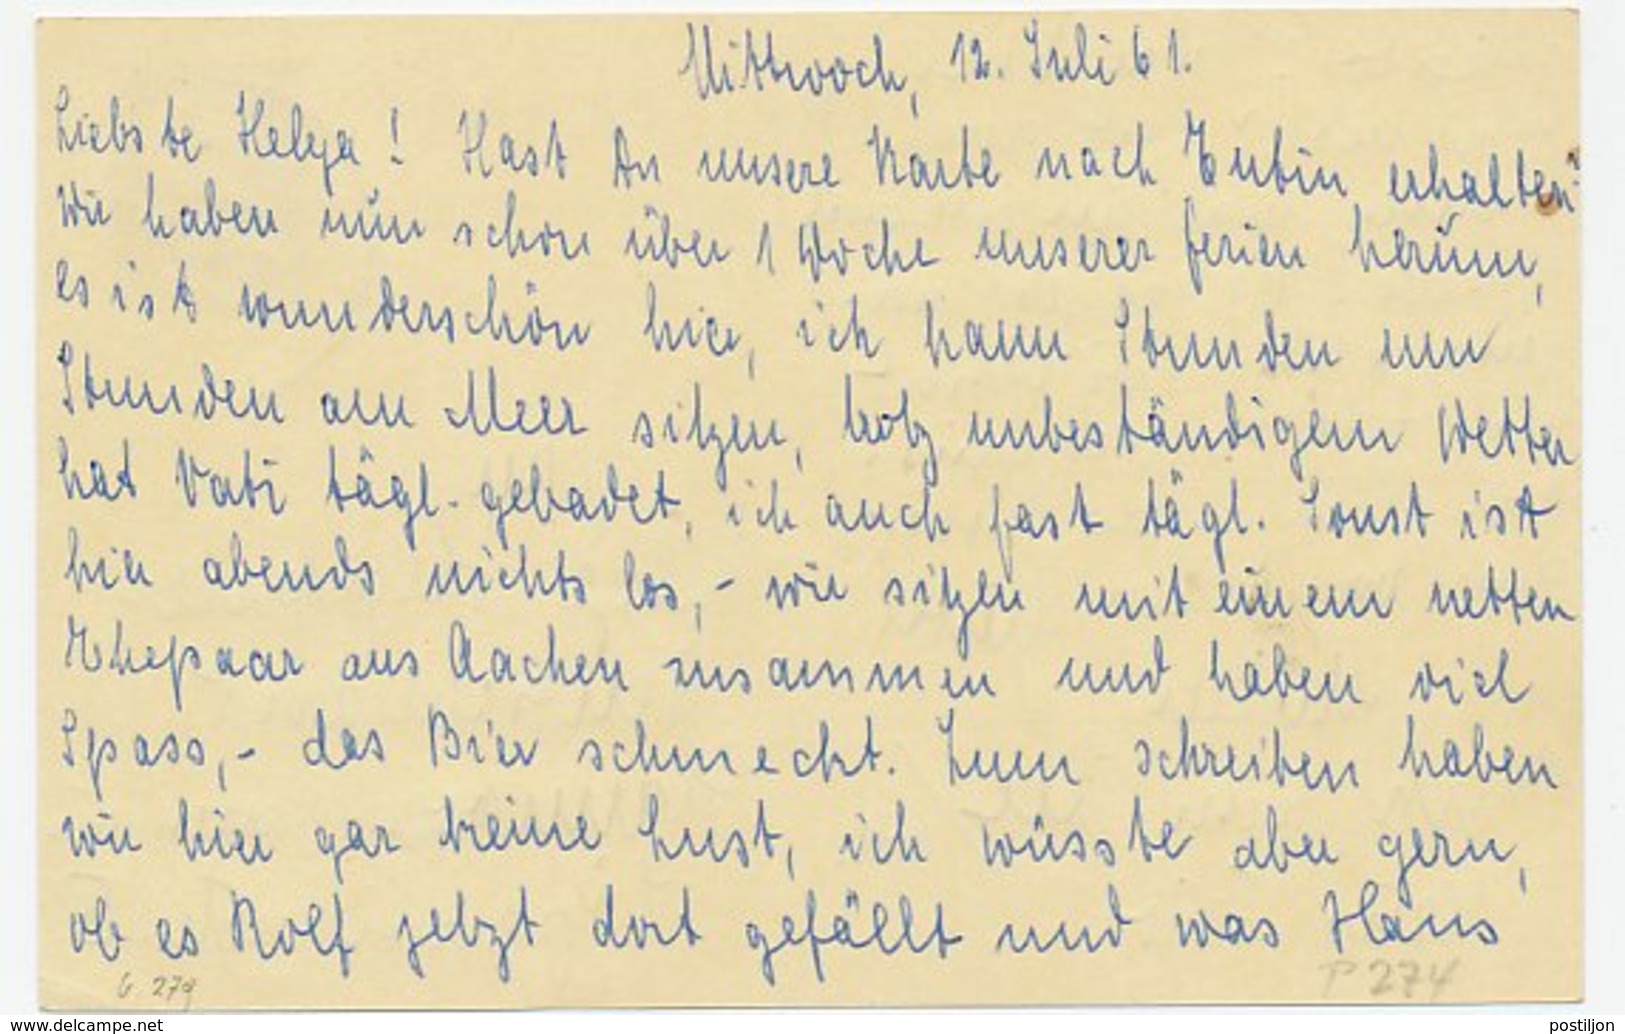 Mittwoch, 12. Juli 61.
Liebste Helga! Hast Du unsere Karte nach Eutin erhalten?
Wir haben nun schon über 1 Woche unserer Ferien herum,
es ist wunderschön hier, ich kann Stunden um
Stunden am Meer sitzen, trotz unbeständigem Wetter
hat Vati tägl. gebadet, ich auch fast tägl. Sonst ist
hier abends nichts los, - wir sitzen mit einem netten
Ehepaar aus Aachen zusammen und haben viel
Spass, - das Bier schmeckt. Zum schreiben haben
wir hier gar keine Lust, ich wüsste aber gern,
ob es Rolf jetzt dort gefällt und was Hans
G. 279
P 274
www.delcampe.net
postiljon